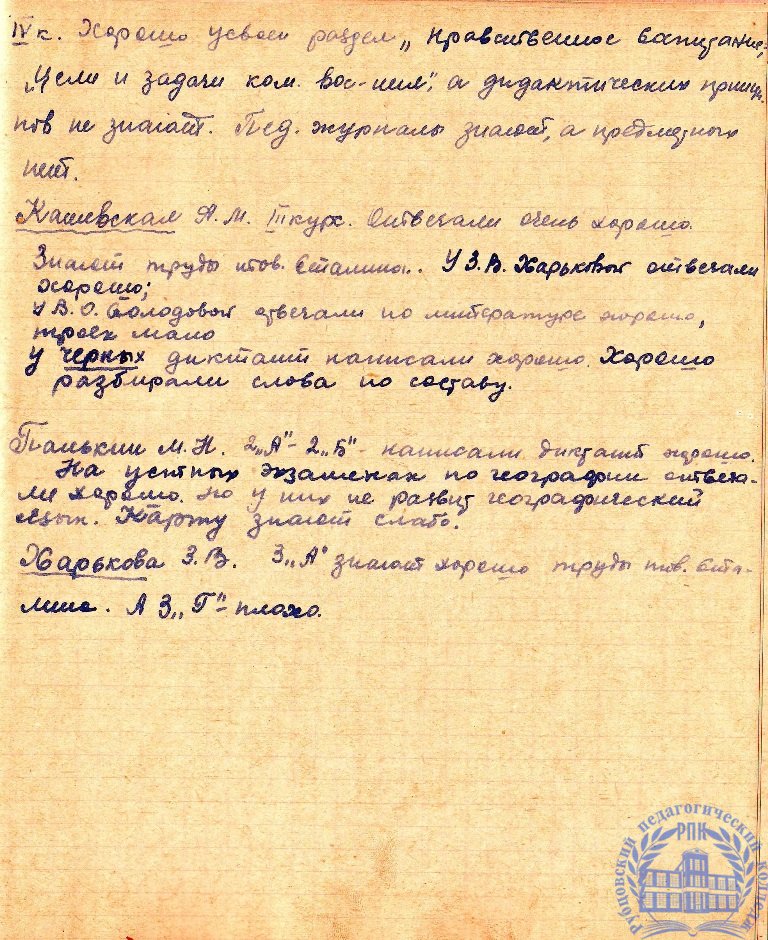 IVк. Хорошо усвоен раздел „Нравственное воспитание,
„Цели и задачи ком. вос-ния", а дидактических принци-
пов не знают. Пед. журналы знают, а предметных
нет.
Кашевская А.М. III курс. Отвечали очень хорошо.
Знают труды тов. Сталина. У З.В. Харьковой отвечали
хорошо;
У В.О. Солодовой отвечали по литературе хорошо,
троек мало
У черных диктант написали хорошо. Хорошо
разбирали слова по составу.
Панькин М.Н. 2„А"- 2„Б" - написали диктант хорошо.
На устных экзаменах по географии отвеча-
ли хорошо. Но у них не развит географический
язык. Карту знают слабо.
Харькова З.В. 3„А" знают хорошо труды тов. Ста-
лина. А 3„Г" - плохо.
Рубцовский педагогический колледж
РПК